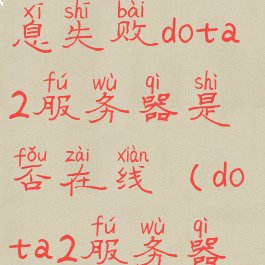 xī shī bài
息失败dota
fú wù qì shì
2服务器是
fǒu zài xiàn
否在线（do
fú wù qì
ta2服务器